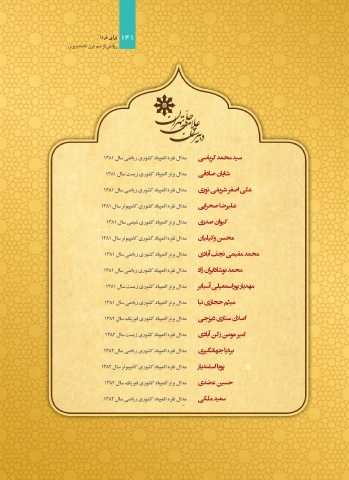 ۱۴۱ برای فردا
روایتی از نیم قرن نخبه‌پروری
دبیرستان علامه حلی تهران
سید محمد کرباسی مدال نقره المپیاد کشوری ریاضی سال ۱۳۸۱
شایان صادقی مدال برنز المپیاد کشوری زیست سال ۱۳۸۱
علی اصغر شریفی نوری مدال نقره المپیاد کشوری ریاضی سال ۱۳۸۱
علیرضا صحرایی مدال نقره المپیاد کشوری کامپیوتر سال ۱۳۸۱
کیوان صدری مدال برنز المپیاد کشوری شیمی سال ۱۳۸۱
محسن وکیلیان مدال نقره المپیاد کشوری کامپیوتر سال ۱۳۸۱
محمد مقیمی نجف آبادی مدال برنز المپیاد کشوری ریاضی سال ۱۳۸۱
محمد نوشادایران زاد مدال نقره المپیاد کشوری ریاضی سال ۱۳۸۱
مهدیار پوراسمعیلی مدال برنز المپیاد کشوری زیست سال ۱۳۸۱
میثم حجازی نیا مدال برنز المپیاد کشوری ریاضی سال ۱۳۸۱
اصلان ستاری دیزجی مدال برنز المپیاد کشوری فیزیک سال ۱۳۸۲
امیر مومن زکی آبادی مدال نقره المپیاد کشوری زیست سال ۱۳۸۲
بردیا جهانگیری مدال نقره المپیاد کشوری ریاضی سال ۱۳۸۲
پویا اسفندیار مدال نقره المپیاد کشوری کامپیوتر سال ۱۳۸۲
حسین عضدی مدال برنز المپیاد کشوری فیزیک سال ۱۳۸۲
سعید ملکی مدال نقره المپیاد کشوری ریاضی سال ۱۳۸۲